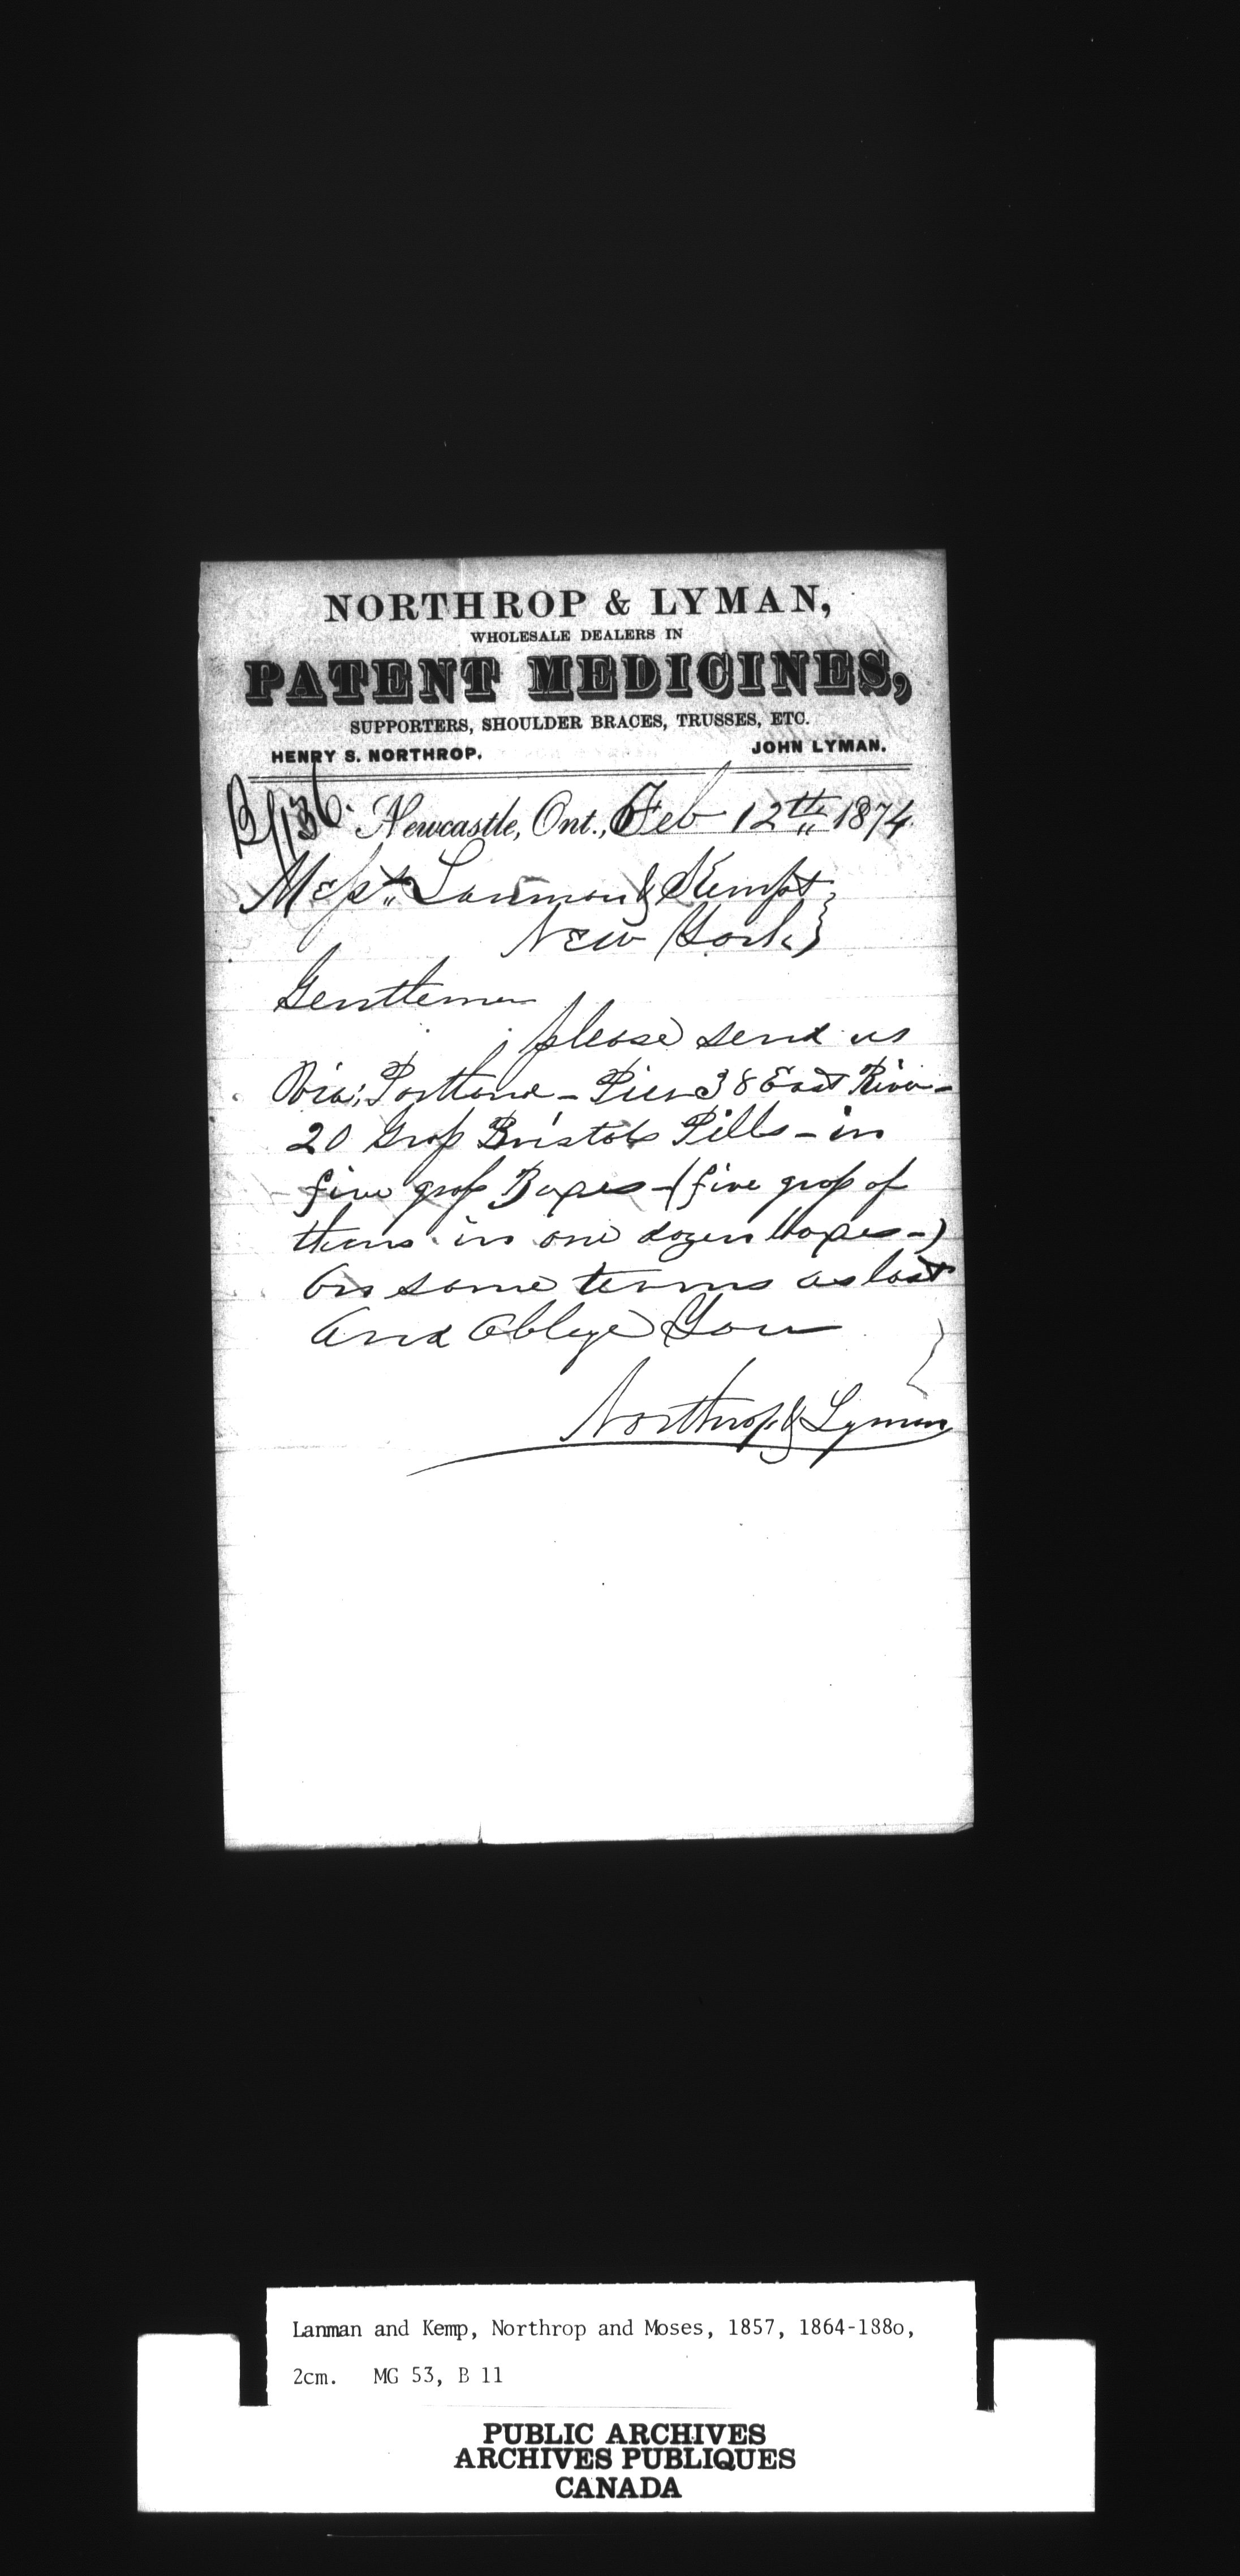 NORTHROP & LYMAN,
WHOLESALE DEALERS IN
PATENT MEDICINES,
SUPPORTERS, SHOULDER BRACES, TRUSSES, ETC.
HENRY S. NORTHROP. JOHN LYMAN.
B/136. Newcastle, Ont., Feb 12th 1874.
Messrs Lanman & Kemp
New York
Gentlemen
please send us
Via; Portland - Pier 38 East River -
20 Gross Bristols Pills - in
five gross Boxes - (five gross of
them in one dozen boxes -)
On same terms as last
And Oblige Your
Northrop & Lyman
Lanman and Kemp, Northrop and Moses, 1857, 1864-188o,
2cm. MG 53, B 11
PUBLIC ARCHIVES
ARCHIVES PUBLIQUES
CANADA